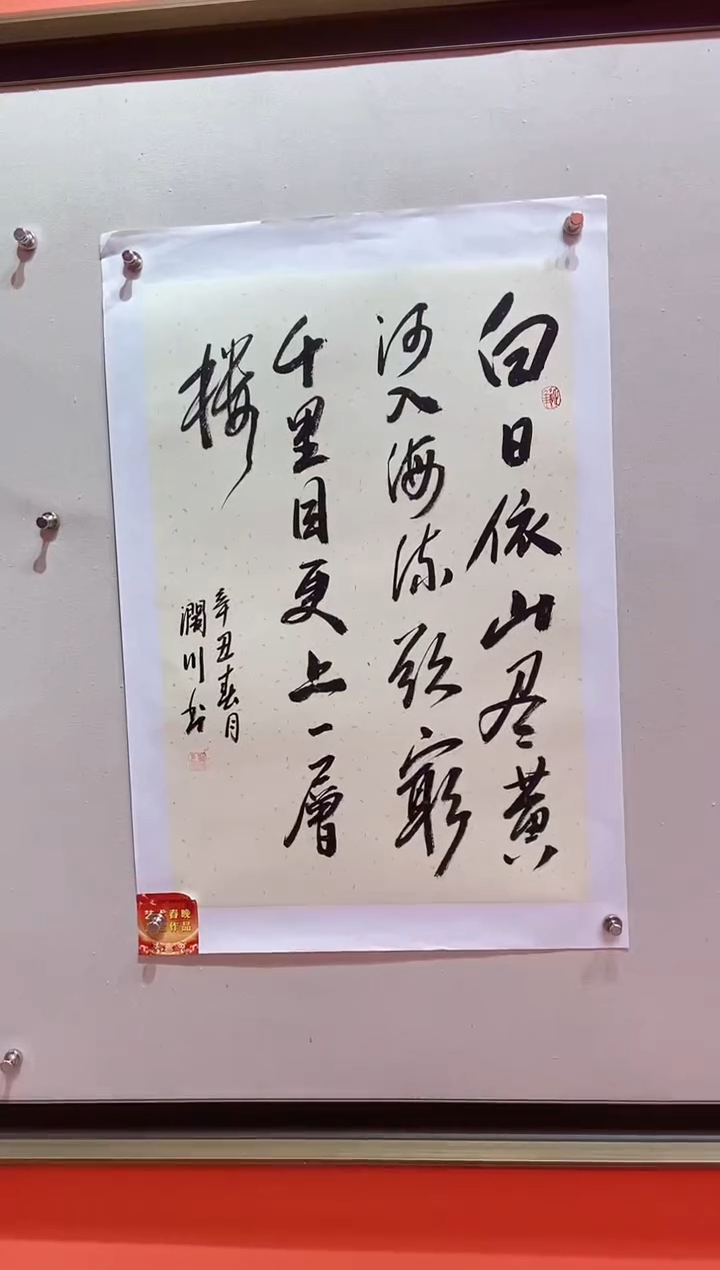 白日依山尽黄
河入海流欲穷
千里目更上一層
楼
辛丑春月
澜川书
艺术春晚
作品